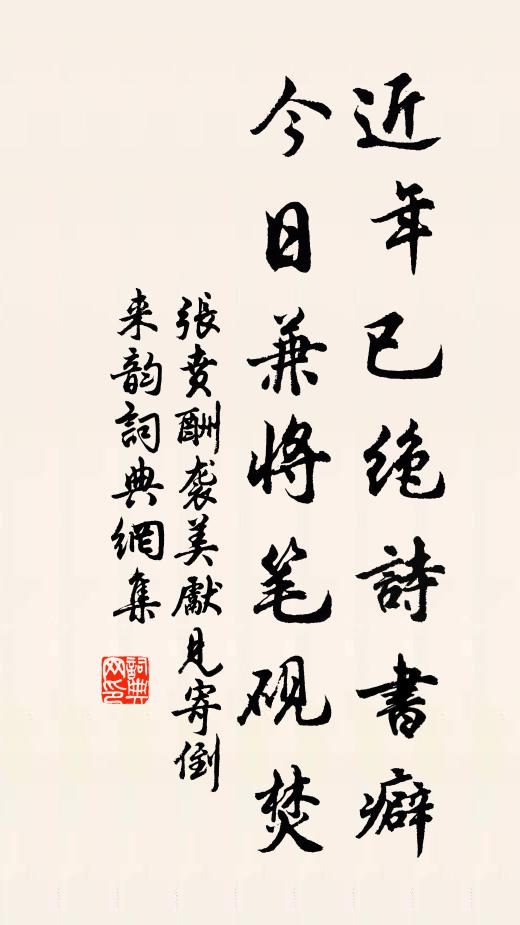 近年已绝詩書癖
今日兼将笔砚焚
張賁酬袭美獻見寄倒
来韵詞典網集
詞典
网印